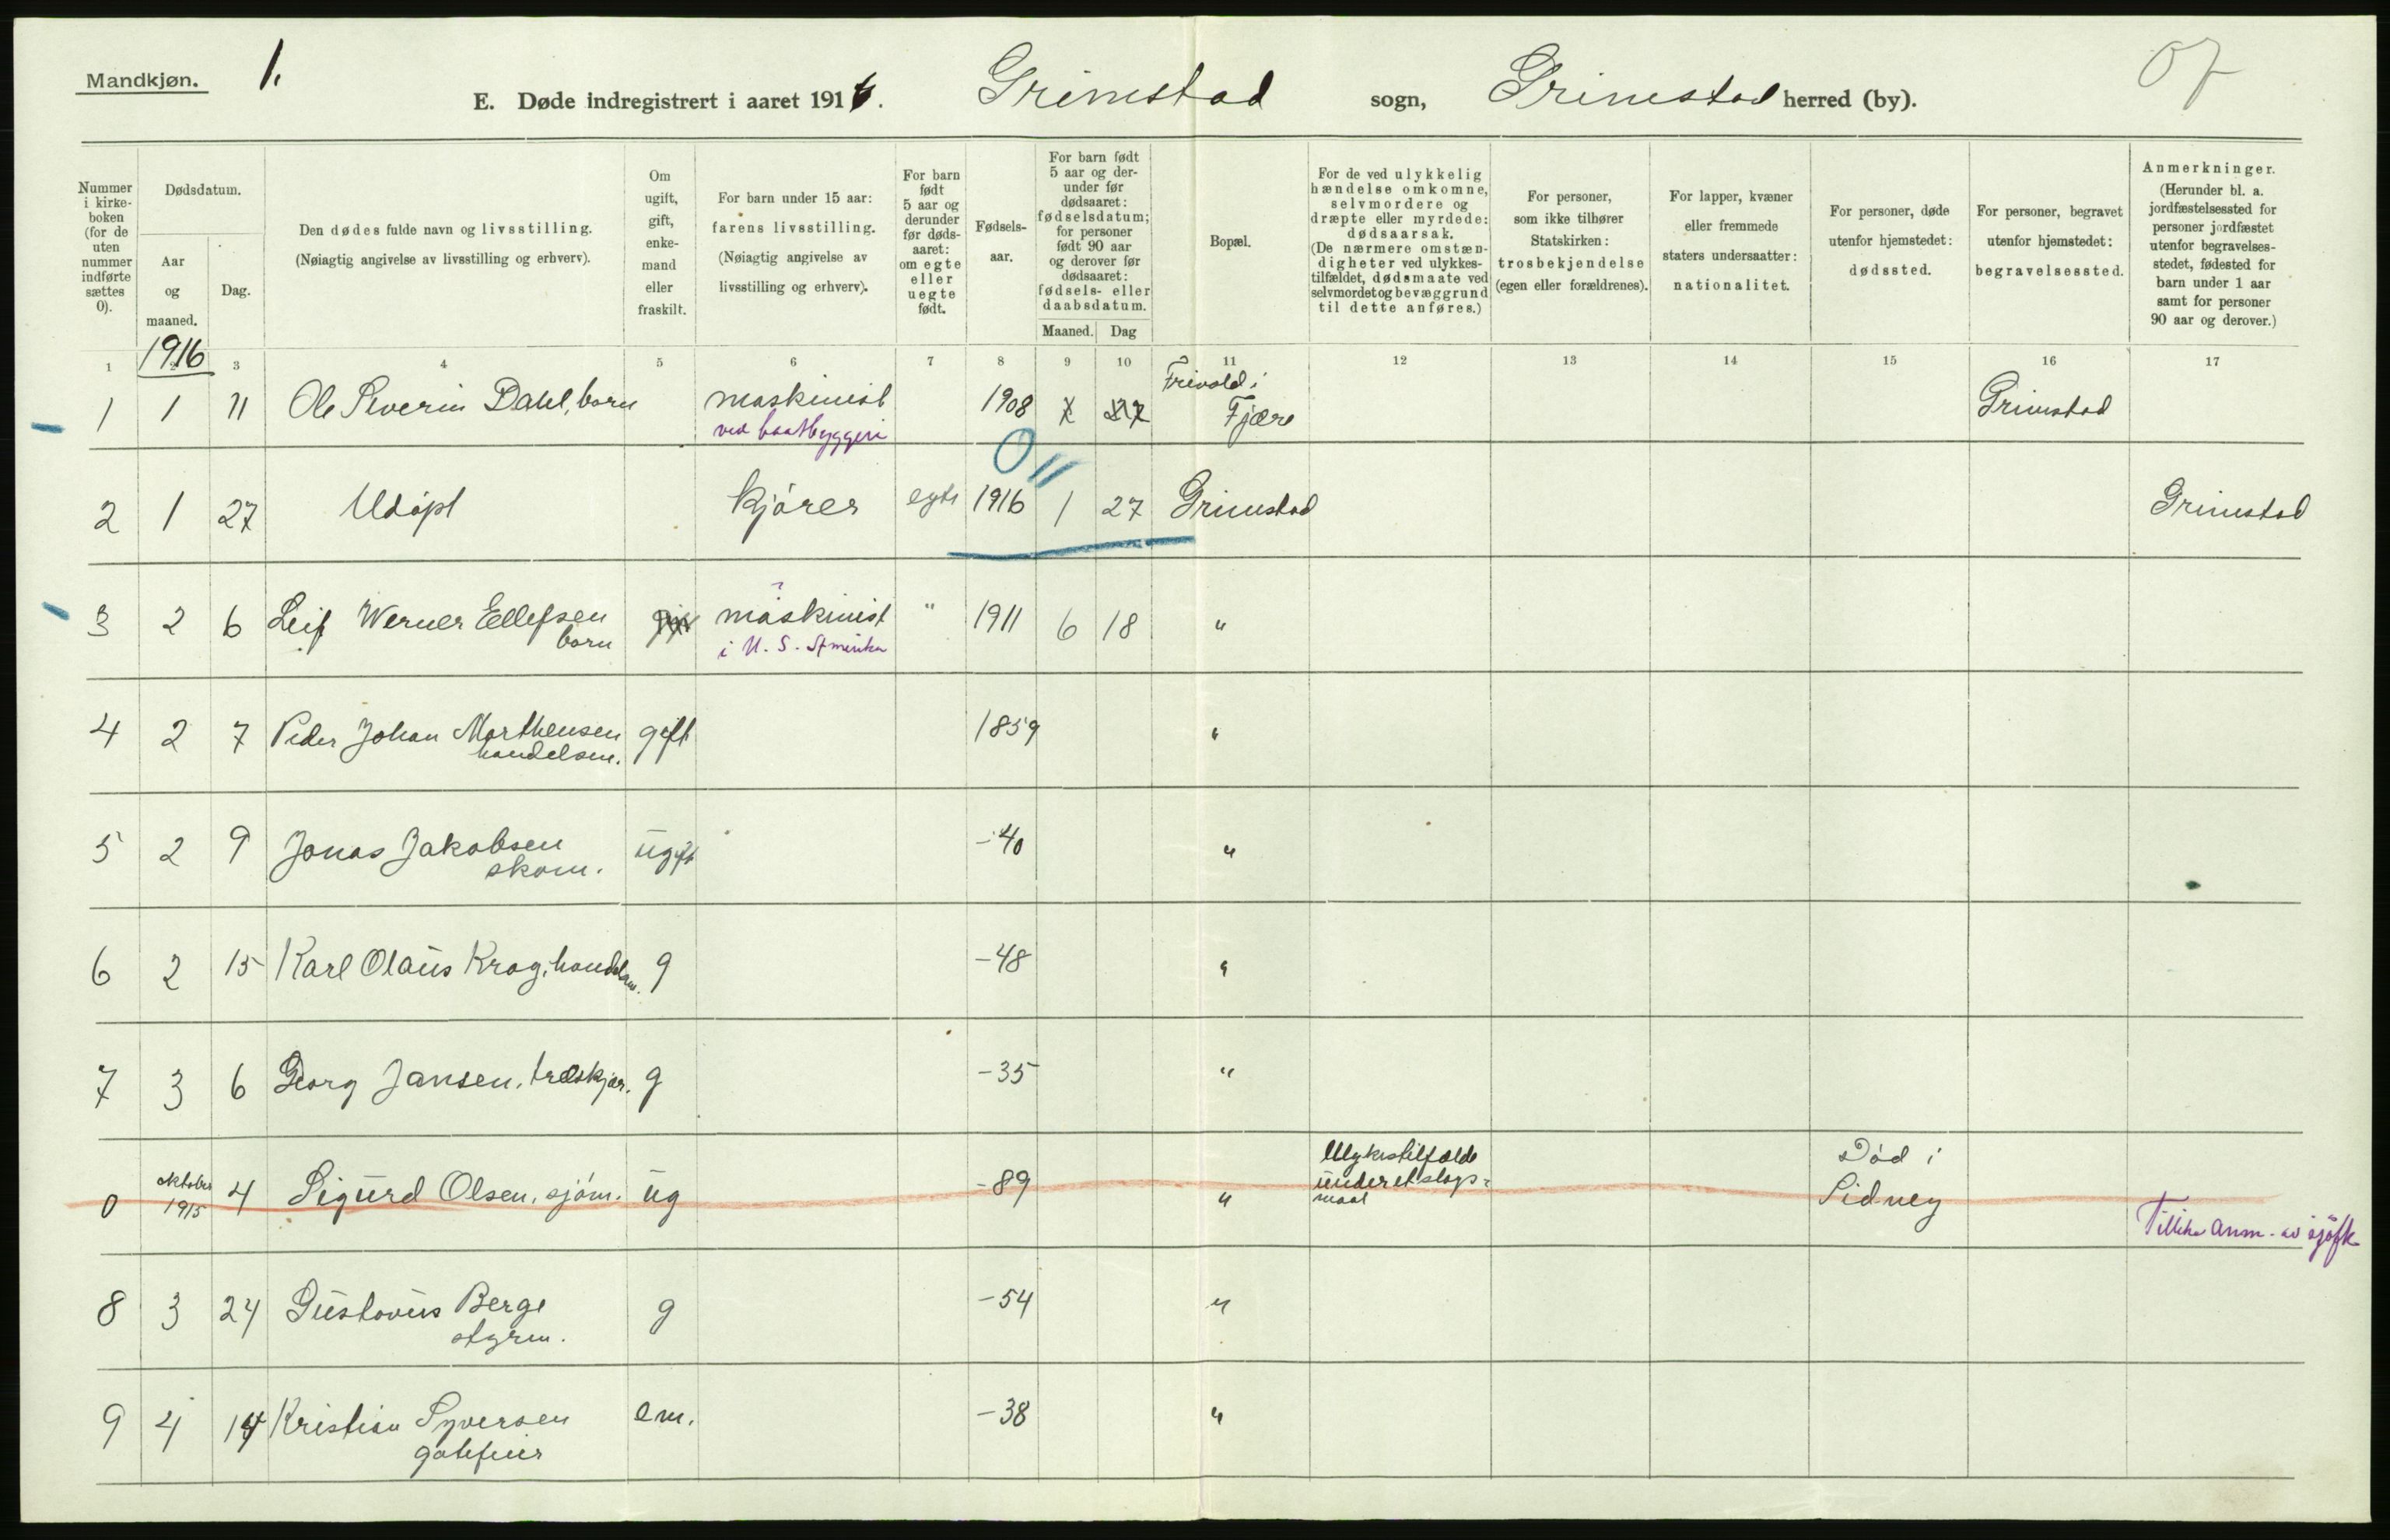 Mandkjøn.
1.
E. Døde indregistrert i aaret 1916. Grimstad sogn, Grimstad herred (by).
07
Nummer i kirke-boken (for de uten nummer indførte sættes 0).
Dødsdatum.
Aar og maaned.
Dag.
Den dødes fulde navn og livsstilling.
(Nøiagtig angivelse av livsstilling og erhverv).
Om ugift, gift, enke-mand eller fraskilt.
For barn under 15 aar: farens livsstilling.
(Nøiagtig angivelse av livsstilling og erhverv).
For barn født 5 aar og derunder før døds-aaret: om egte eller uegte født.
Fødsels-aar.
For barn født 5 aar og der-under før dødsaaret: fødselsdatum; for personer født 90 aar og derover før dødsaaret: fødsels- eller daabsdatum.
Maaned. Dag
Bopæl.
For de ved ulykkelig hændelse omkomne, selvmordere og dræpte eller myrdede: dødsaarsak.
(De nærmere omstæn-digheter ved ulykkes-tilfældet, dødsmaate ved selvmordet og bevæggrund til dette anføres.)
For personer, som ikke tilhører Statskirken: trosbekjendelse (egen eller forældrenes).
For lapper, kvæner eller fremmede staters undersaatter: nationalitet.
For personer, døde utenfor hjemstedet: dødssted.
For personer, begravet utenfor hjemstedet: begravelsessted.
Anmerkninger.
(Herunder bl. a. jordfæstelsessted for personer jordfæstet utenfor begravelses-stedet, fødested for barn under 1 aar samt for personer 90 aar og derover.)
1 2 3 4 5 6 7 8 9 10 11 12 13 14 15 16 17
1916
1 1 11 Ole Severin Dahl, barn maskinist 1908 Frivold i Fjære Grimstad
ved baatbyggeri
2 1 27 Udöpt kjörer egte 1916 1 27 Grimstad Grimstad
3 2 6 Leif Werner Ellefsen gift maskinist " 1911 6 18 "
barn i U. S. Amerika
4 2 7 Peder Johan Marthensen gift 1859 "
handelsm.
5 2 9 Jonas Jakobsen ugift -40 "
skom.
6 2 15 Karl Olaus Krog, handelsm. g -48 "
7 3 6 Georg Jansen, træskjær. g -35 "
0 oktober 1915 4 Sigurd Olsen, sjöm. ug -89 " Ulykestilfælde under et slags-maal Död i Sidney
Tillike anm. av sjöfk
8 3 24 Gustavus Berge g -54 "
styrm.
9 4 14 Kristian Syversen em. -38 "
gatefeier